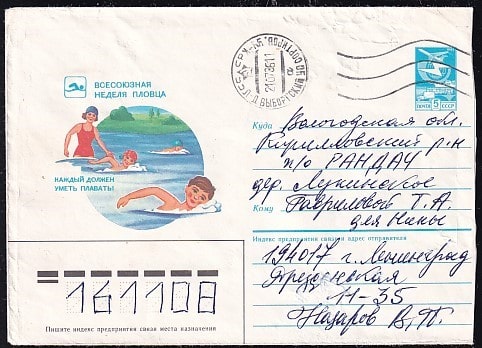 ВСЕСОЮЗНАЯ
НЕДЕЛЯ ПЛОВЦА
КАЖДЫЙ ДОЛЖЕН
УМЕТЬ ПЛАВАТЬ!
ПОЧТА 5 СССР
Куда Вологодская обл.
Кирилловский р-н
п/о
дер. Лукинское
Кому Гавриловой Т. А.
для Нины
Индекс предприятия связи и адрес отправителя
194017 г. Ленинград
11-35
Назаров В. П.
161108
Пишите индекс предприятия связи места назначения